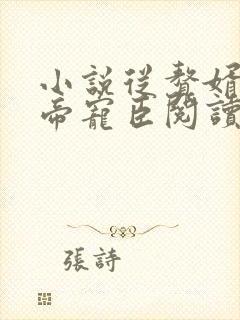 小説從贅婿
帝寵臣閱讀
張詩